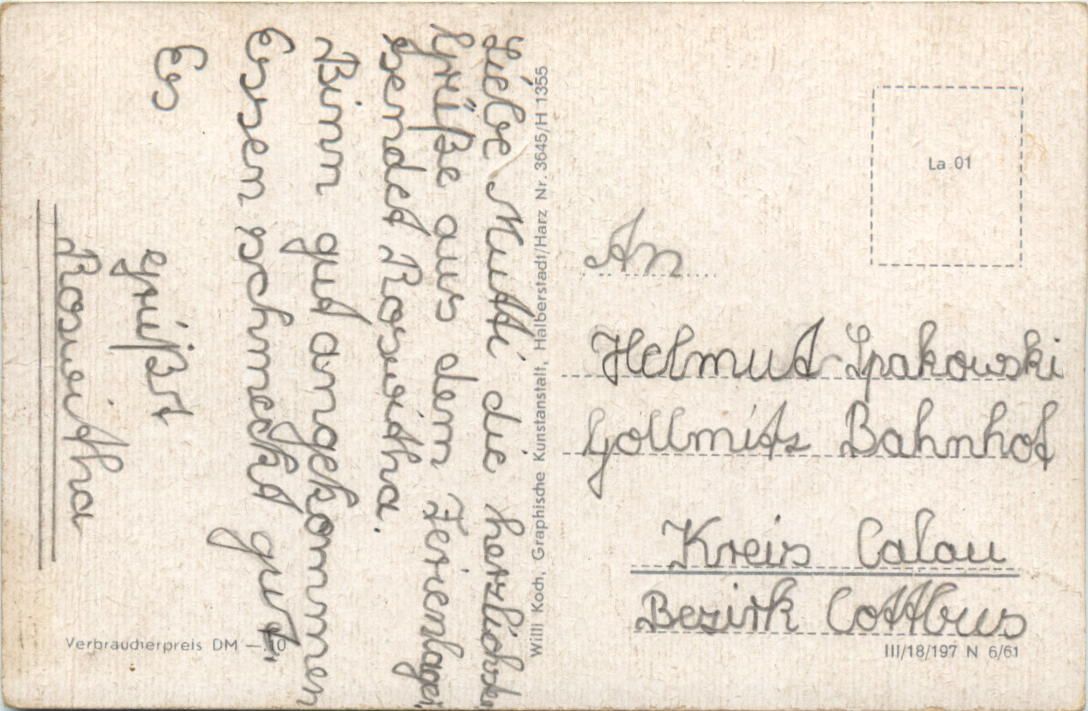 Liebe Mutti die herzlichste
Grüße aus dem Ferienlager
sendet Roswitha.
Binn gut angekommen
Essen schmeckt gut.
Es
grüßt
Roswitha
Verbraucherpreis DM —.10
Willi Koch, Graphische Kunstanstalt, Halberstadt/Harz Nr. 3645/H 1355
La 01
An
Helmut Spakowski
Gollmitz Bahnhof
Kreis Calau
Bezirk Cottbus
III/18/197 N 6/61